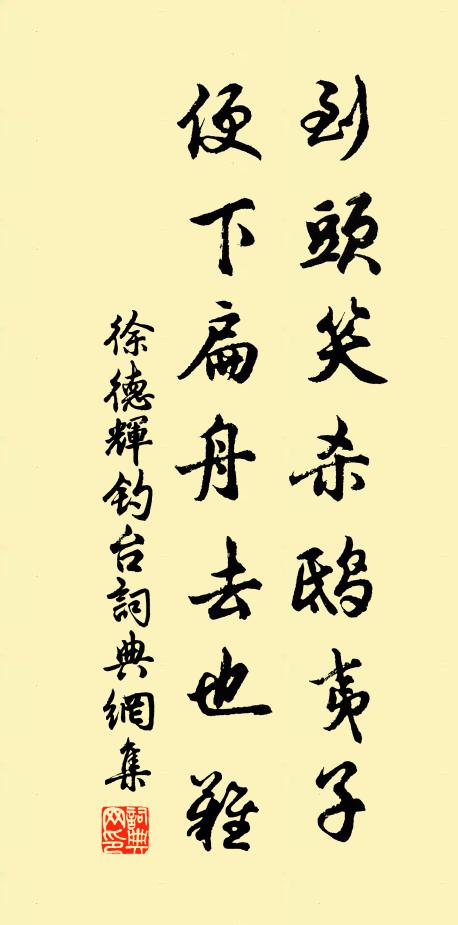 到頭笑杀鸱夷子
便下扁舟去也難
徐德輝钓台詞典網集
詞典网印